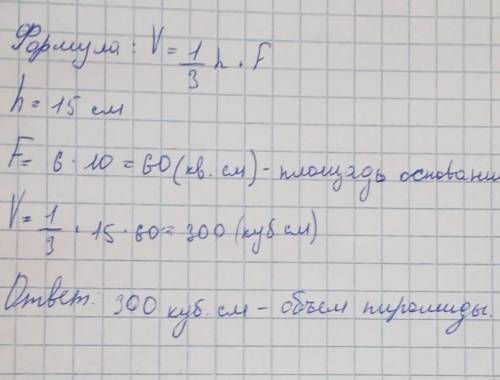 Формула: V = 1/3 h · F
h = 15 см
F = 6 · 10 = 60 (кв. см) - площадь основани
V = 1/3 · 15 · 60 = 300 (куб см)
Ответ: 300 куб. см - объем пирамиды.